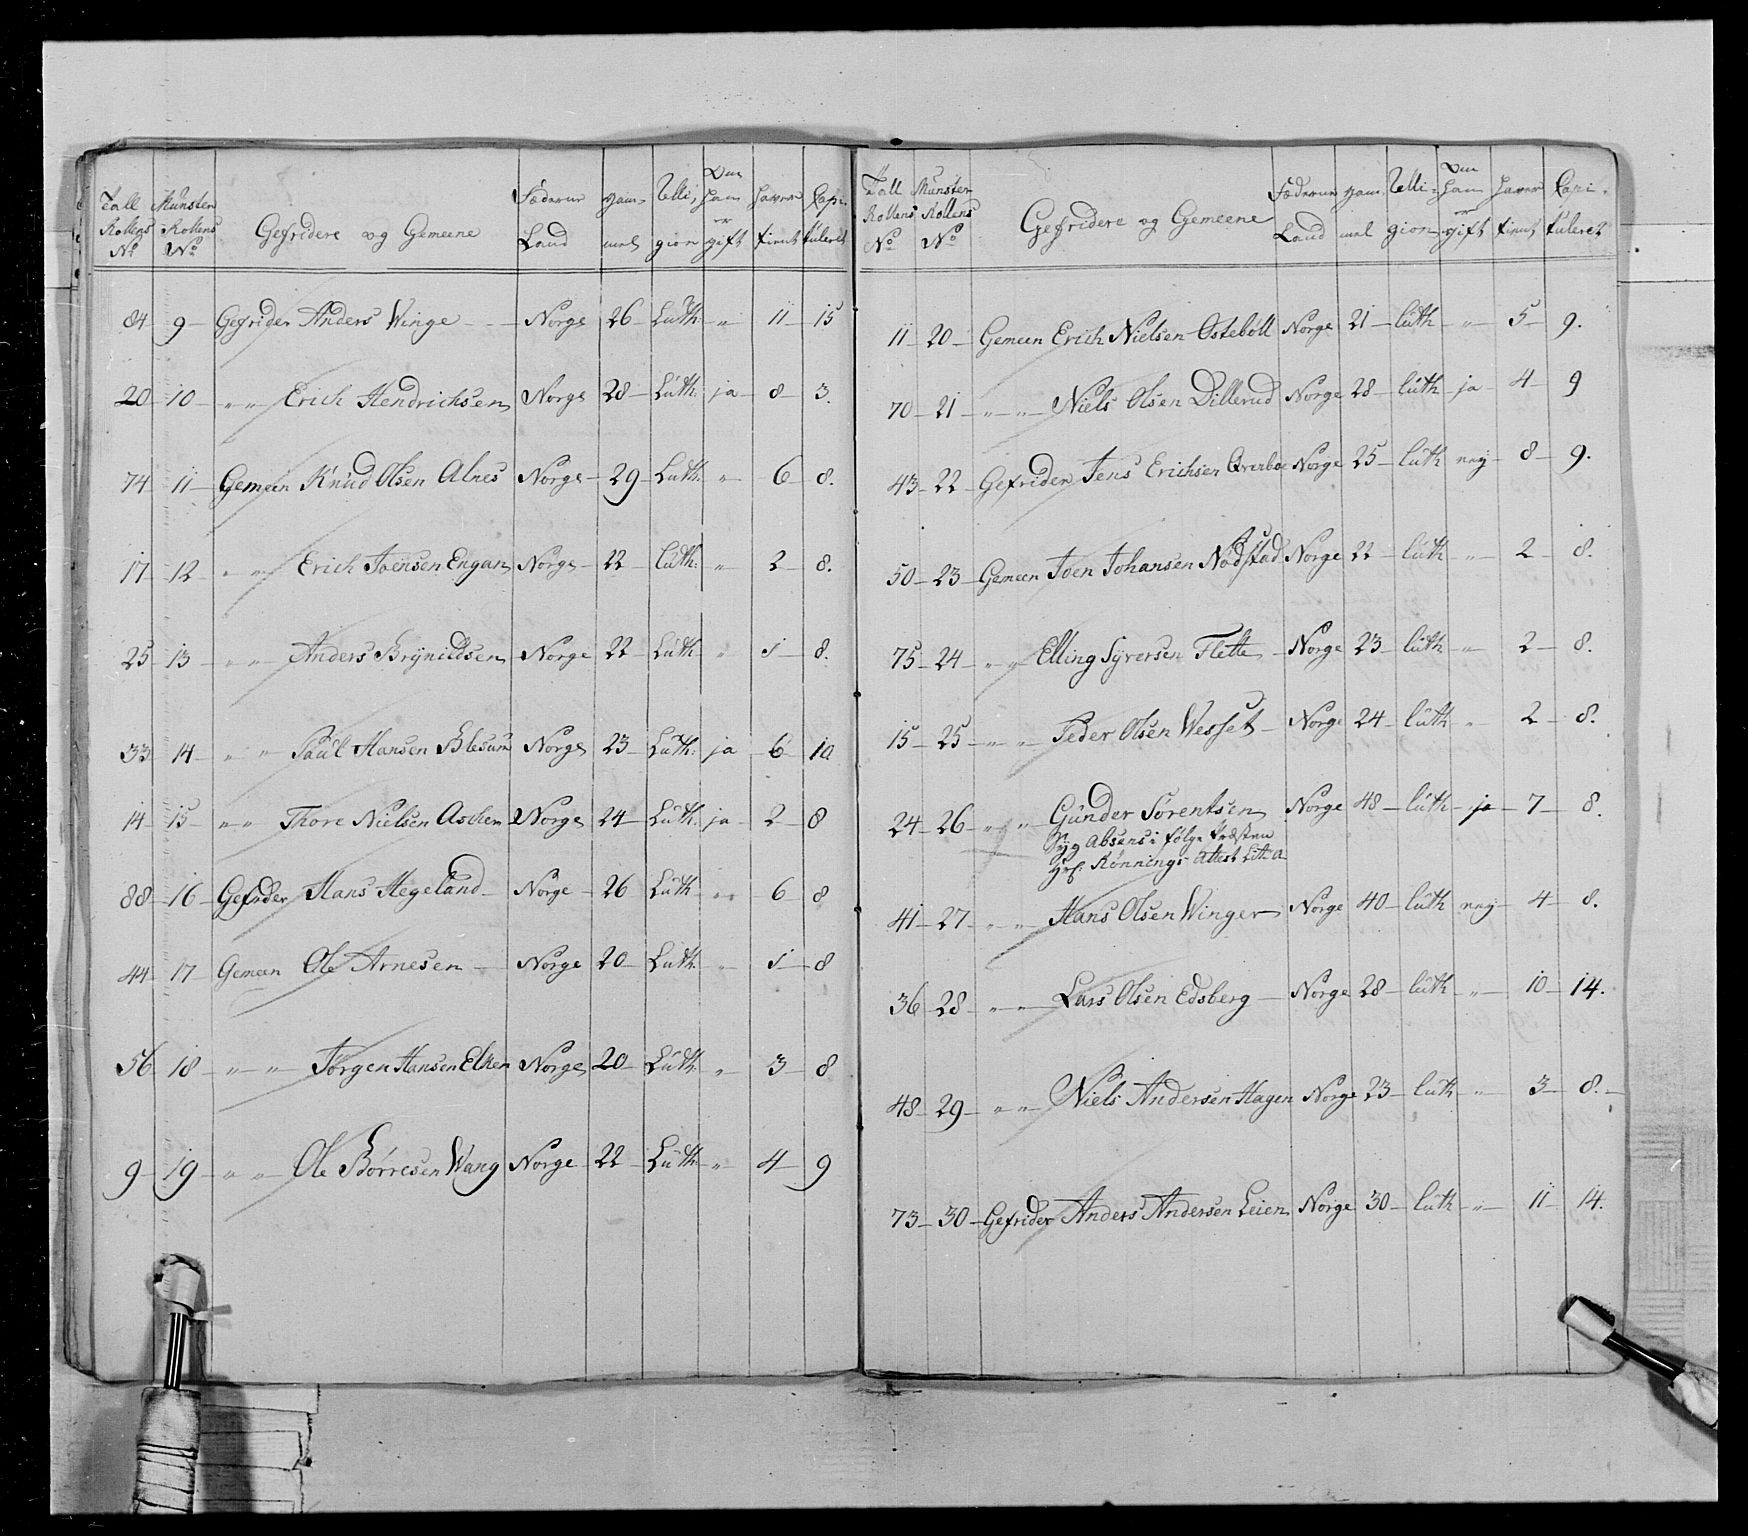 Tall Rollens No | Munster Rollens No | Gefridere og Gemeene | Fæderne Land | gammel | Relligion | Om ham er gift | haver tient | Capituleret
84 | 9 | Gefrider Anders Winge | Norge | 26 | Luth | " | 11 | 15
20 | 10 | " " Erich Hendrichsen | Norge | 28 | Luth: | ja | 8 | 3.
74 | 11 | Gemeen Knud Olsen Alnes | Norge | 29 | Luth: | " | 6 | 8.
17 | 12 | " " Erich Joensen Engan | Norge | 22 | Luth: | " | 2 | 8.
25 | 13 | " " Anders Brynildsen | Norge | 22 | Luth | " | 1 | 8.
33 | 14 | " " Paul Hansen Blesum | Norge | 23 | Luth: | ja | 6 | 10
14 | 15 | " " Thore Nielsen Aschem | Norge | 24 | Luth: | ja | 2 | 8
88 | 16 | Gefrider Hans Hegeland | Norge | 26 | Luth | " | 6 | 8
44 | 17 | Gemeen Ole Arnesen | Norge | 20 | Luth: | " | 1 | 8
56 | 18 | " " Jørgen Hansen Elken | Norge | 20 | Luth: | " | 3 | 8
9 | 19 | " " Ole Børresen Wang | Norge | 22 | Luth | " | 4 | 9
Tall Rollens No | Munster Rollens No | Gefridere og Gemeene | Fæderne Land | gammel | Relligion | Om ham er gift | haver tient | Capituleret
11 | 20 | Gemeen Erich Nielsen Ostebøll | Norge | 21 | luth | " | 5 | 9.
70 | 21 | " " Niels Olsen Dillerud | Norge | 28 | luth | ja | 4 | 9
43 | 22 | Gefrider Jens Erichsen Overboe | Norge | 25 | luth | ney | 8 | 9.
50 | 23 | Gemeen Joen Johansen Nødstad | Norge | 22 | luth | " | 2 | 8.
75 | 24 | " " Elling Syversen Flette | Norge | 23 | luth | " | 2 | 8.
15 | 25 | " " Peder Olsen Wesset | Norge | 24 | luth | " | 2 | 8.
24 | 26 | " " Gunder Sørentsen | Norge | 48 | luth | ja | 7 | 8.
Syg Absens i følge Præsten
Hr. Rønnings Attest Lit: a
41 | 27 | " " Hans Olsen Winger | Norge | 40 | luth | ney | 4 | 8.
36 | 28 | " " Lars Olsen Edsberg | Norge | 28 | luth | " | 10 | 14.
48 | 29 | " " Niels Andersen Hagen | Norge | 23 | luth | " | 3 | 8.
73 | 30 | Gefrider Anders Andersen Leien | Norge | 30 | luth | " | 11 | 14.